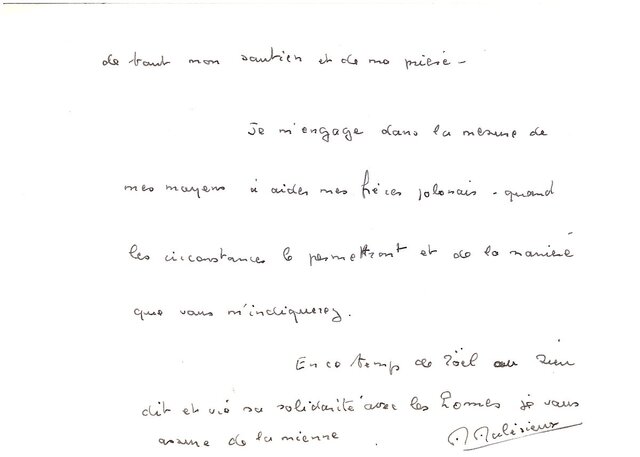 de tout mon soutien et de ma prière -
Je m'engage dans la mesure de
mes moyens à aider mes frères polonais - quand
les circonstances le permettront et de la manière
que vous m'indiquerez.
En ce temps de Noël où Dieu
dit et vie sa solidarité avec les Hommes je vous
assure de la mienne